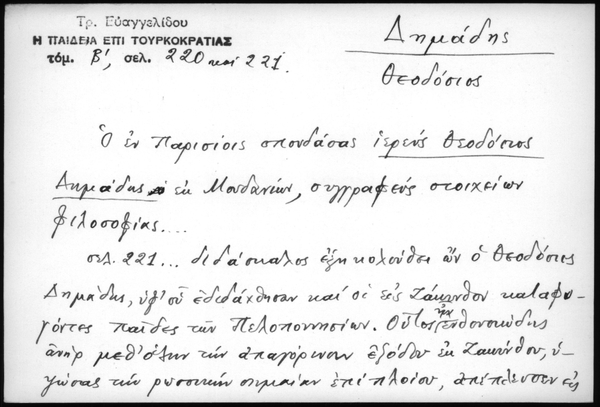 Τρ. Εὐαγγελίδου
Η ΠΑΙΔΕΙΑ ΕΠΙ ΤΟΥΡΚΟΚΡΑΤΙΑΣ
τόμ. Β', σελ. 220 καί 221.
Δημάδης
Θεοδόσιος
Ὁ ἐν Παρισίοις σπουδάσας ἱερεύς Θεοδόσιος
Δημάδης ἐκ Μουδανίων, συγγραφεύς στοιχείων
φιλοσοφίας....
σελ. 221... διδάσκαλος ἐξηκολούθει ὤν ὁ Θεοδόσιος
Δημάδης, ὑφ' οὗ ἐδιδάχθησαν καί οἱ εἰς Ζάκυνθον καταφυ-
γόντες παῖδες τῶν Πελοποννησίων. Οὗτος ἦν ἐνθουσιώδης
ἀνήρ μεθ' ὅλην τήν ἀπαγόρευσιν ἐξόδου ἐκ Ζακύνθου, ὑ-
ψώσας τήν ρωσσικήν σημαίαν ἐπί πλοίου, ἀπέπλευσεν εἰς